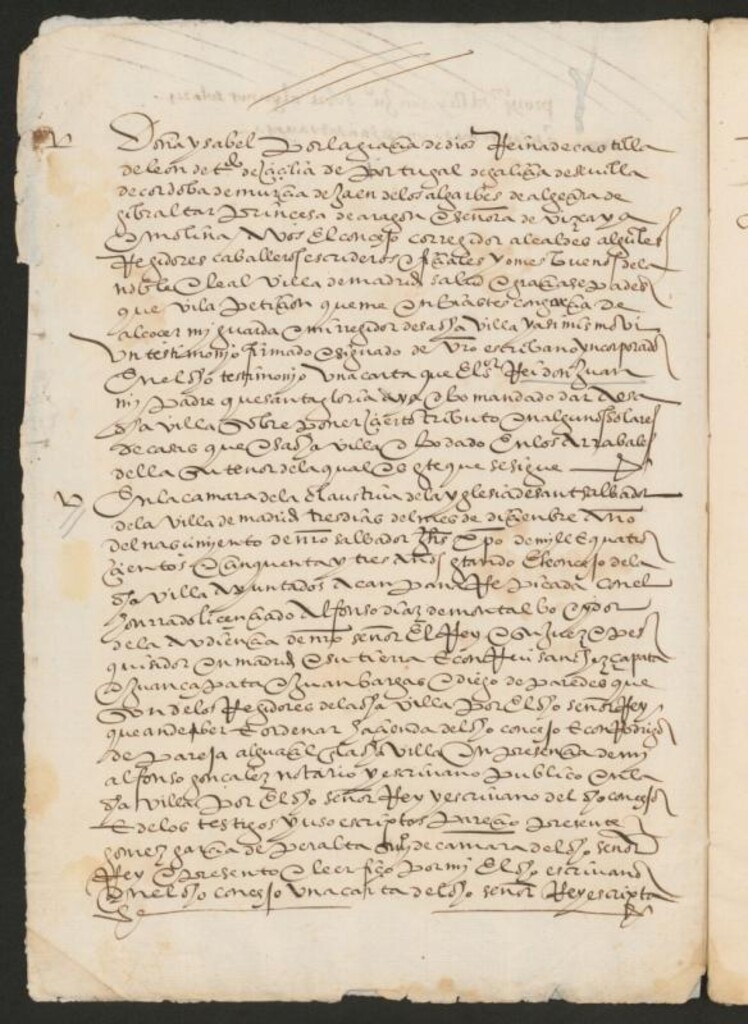 Doña ysabel Por la graçia de dios Reina de castilla
de leon de tdo de çeçilia de Portugal de galizia de seuilla
de cordoba de murçia de jaen de los algarbes de algezira de
gibraltar Prinçesa de aragon E señora de vizcaya
E molina A vos El conçejo corregidor alcaldes alguaziles
Regidores caballeros escuderos ofiçiales y omes buenos de la
noble E leal Villa de madrid salud E graçia sepades
que vi la petiçion que me enbiastes con garçia de
alcoçer mi guarda E mi regidor desa dha villa y asi mismo vi
Vn testimonio firmado E signado de vro escribano yncorporado
En el dho testimonio Vna carta que El sr Rei don Juan
mi Padre que santa gloria aya obo mandado dar A esa
dha villa sobre poner çierto tributo en algunos solares
de casas que esa dha villa obo dado En los Arrabales
della su tenor de la qual es este que se sigue
En la camara de la claustra de la yglesia de sant salbador
de la villa de madrid tres dias del mes de diziembre Año
del nasçimiento de nro salbador Jhs xpo de mill E quatro
çientos E çinquenta y tres Años estando El conçejo de la
dha villa Ayuntados A canpana Repicada con el
honrrado liçençiado Alfonso diaz de montalbo oydor
de la Audiençia de nro señor El Rey E su Juez E pes
quisidor en madrid E su tierra E con Rui sanchez çapata
E Juan çapata E Juan bargas E diego de paredes que
son de los Regidores de la dha villa Por El dho señor Rey
que an de ber E ordenar hazienda del dho conçejo E con Rodrigo
de pareja alguazil En la dha villa En presençia de mi
alfonso gonçalez notario y escriuano publico En la
dha villa Por El dho señor Rey y escriuano del dho conçejo
E de los testigos yuso escriptos Pareçio presente
gomez garçia de Peralta de camara del dho señor
Rey E presento E leer fizo Por mi El dho escriuano
En el dho conçejo Vna carta del dho señor Rey escripta